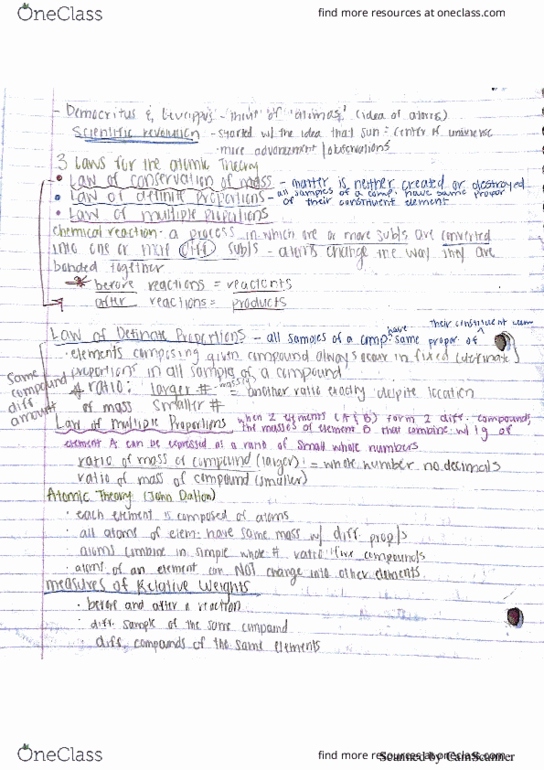 OneClass
find more resources at oneclass.com
- Democritus & Leucippus - think of "atomos" (idea of atoms)
Scientific revolution - started w/ the idea that sun = center of universe
- more advancement / observations
3 Laws for the atomic Theory
• Law of conservation of mass - matter is neither created or destroyed
• Law of definite proportions - all samples of a comp. have same propor
of their constituent element
• Law of multiple proportions
chemical reaction - a process in which one or more subs are converted
into one or more diff subs - atoms change the way they are
bonded together
before reactions = reactants
after reactions = products
Law of Definate Proportions - all samples of a comp. have same propor. of their constituent elem
• elements composing given compound always occur in fixed (definate)
proportions in all sample of a compound
Same compound diff amount
ratio: larger # = another ratio exactly despite location
of mass smaller #
Law of Multiple Proportions when 2 elements (A & B) form 2 diff. compound,
the masses of element B that combine w/ 1g of
element A can be expressed as a ratio of small whole numbers
ratio of mass of compound (larger) = whole number no decimals
ratio of mass of compound (smaller)
Atomic Theory (John Dalton)
• each element is composed of atoms
• all atoms of elem. have same mass w/ diff prop
• atoms combine in simple whole # ratio compounds
• atoms of an element can NOT change into other elements
measures of Relative Weights
• before and after a reaction
• diff. sample of the same compound
diff. compounds of the same elements
OneClass
find more resources at oneclass.com
Scanned by CamScanner